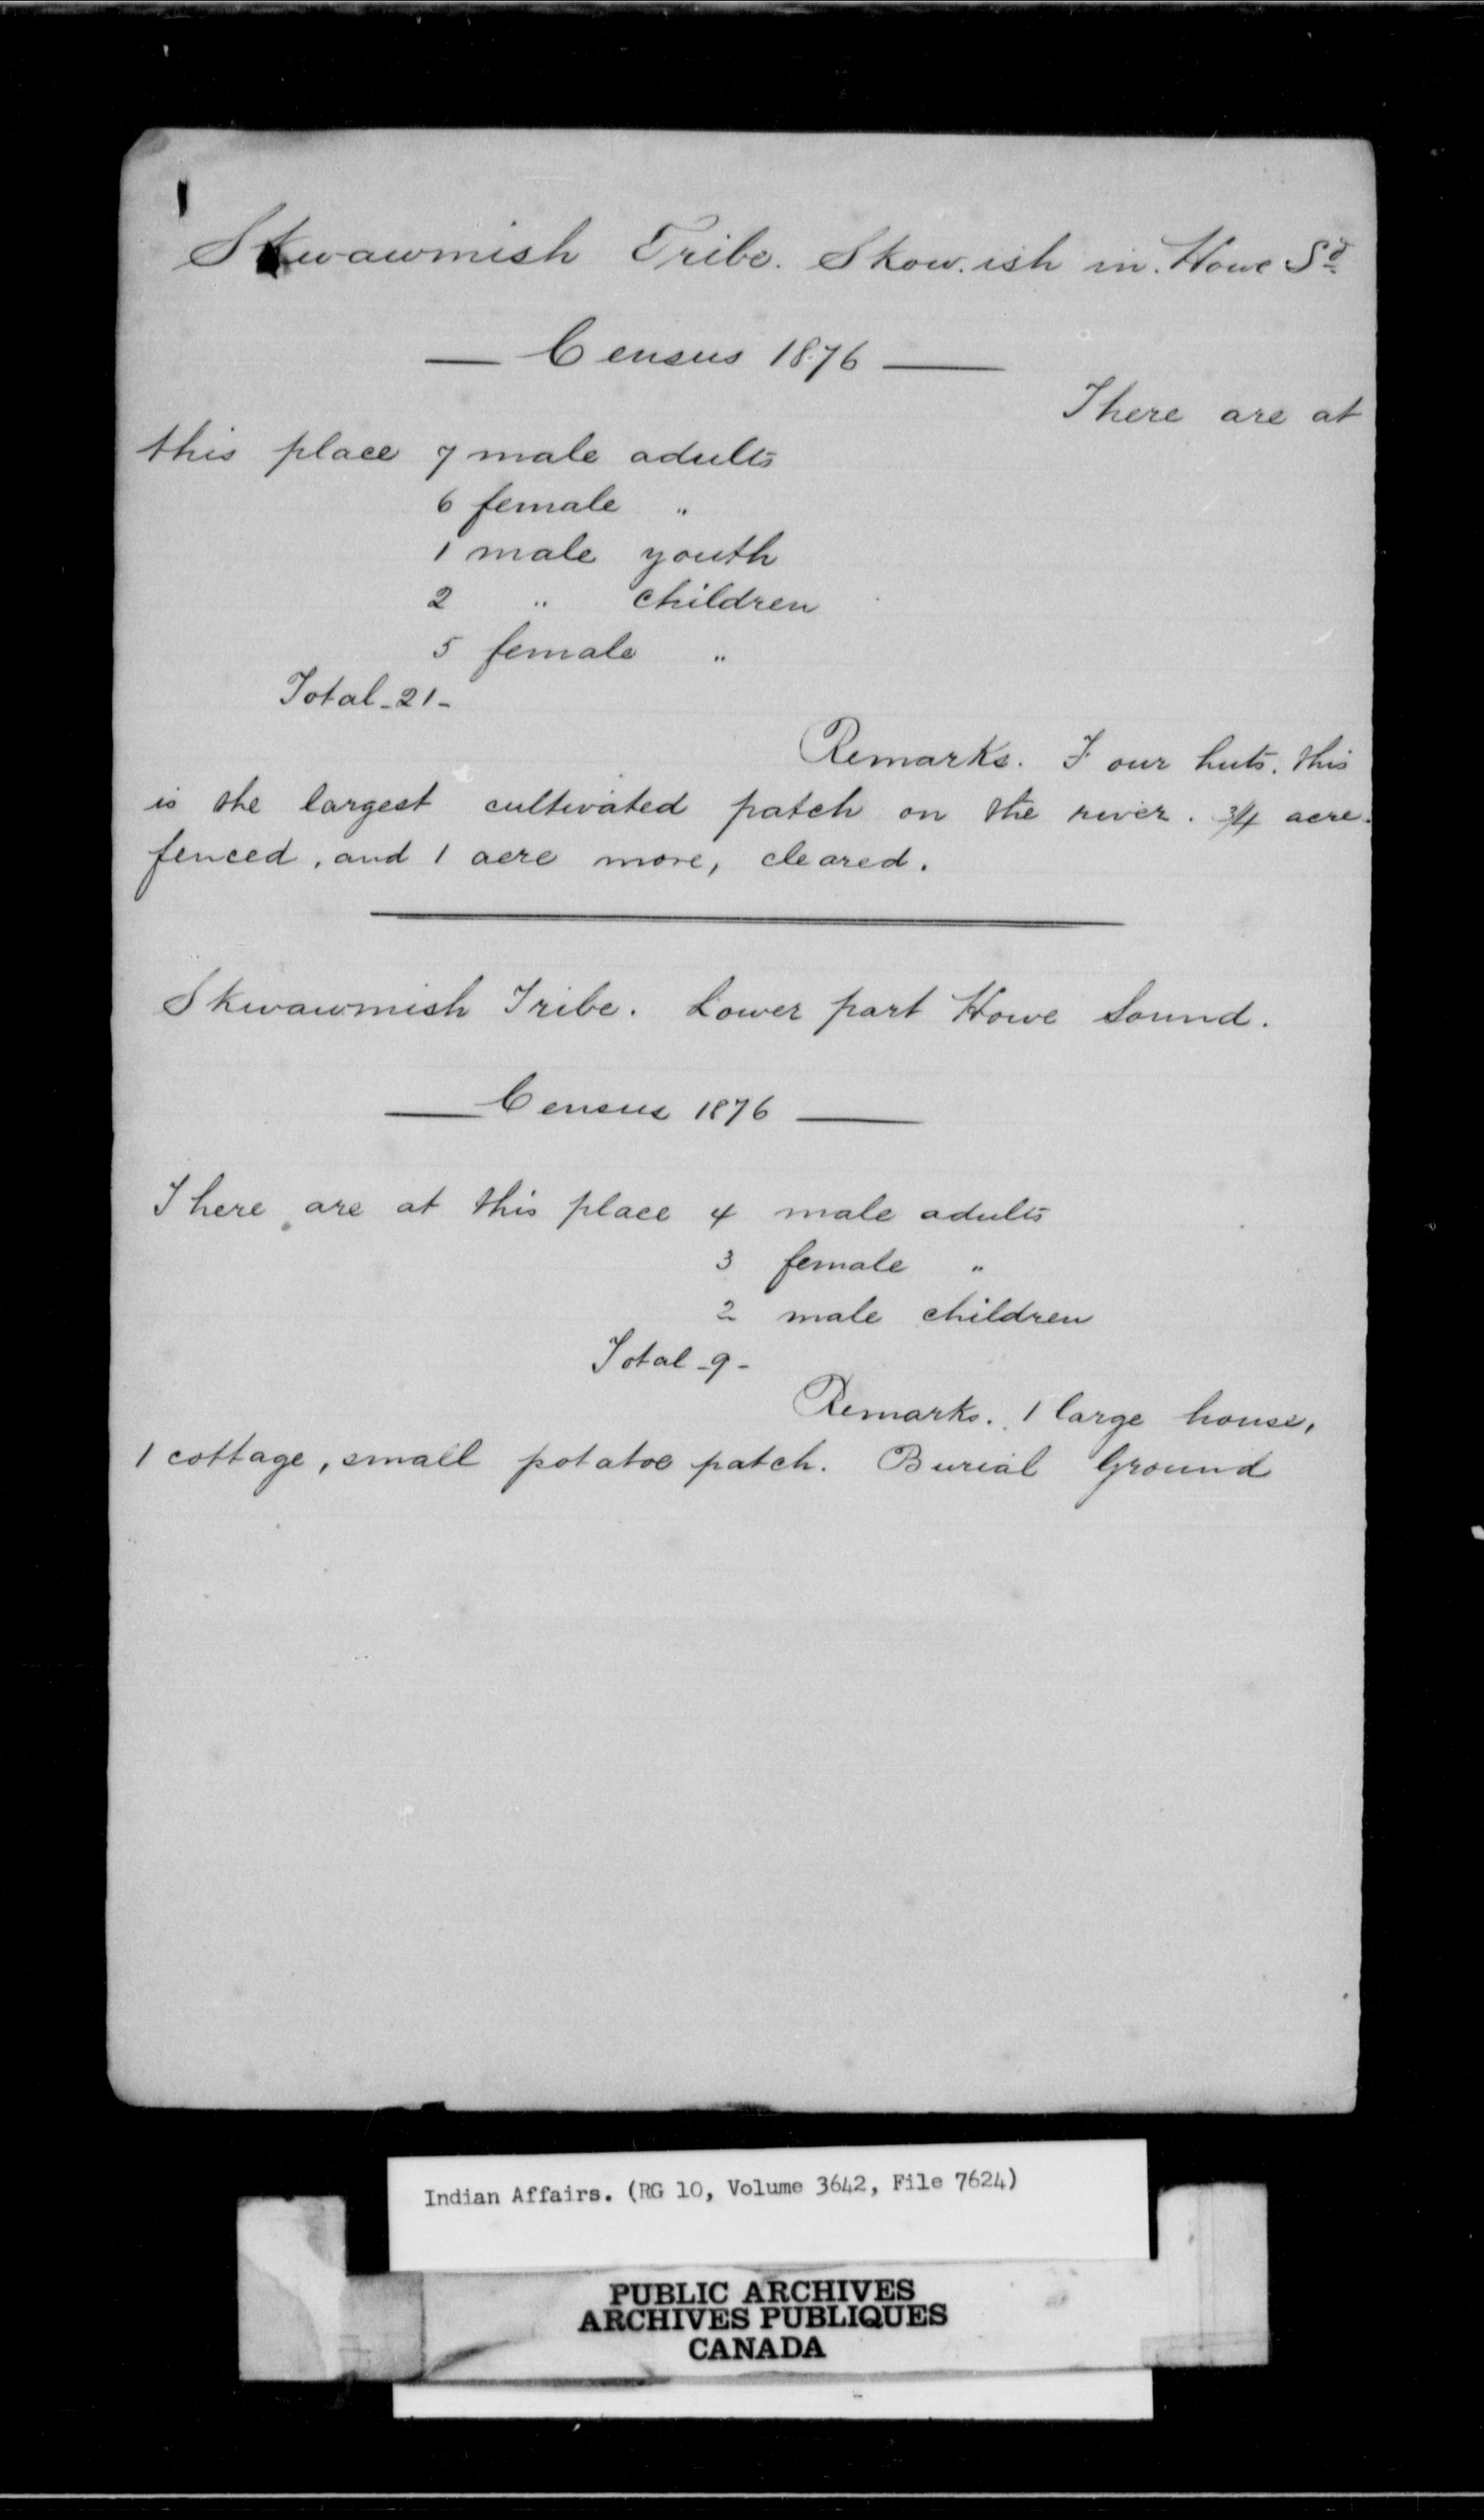 Skwawmish Tribe. Skow.ish in. Howe Sd
— Census 1876 —
There are at
this place 7 male adults
6 female "
1 male youth
2 " children
5 female "
Total - 21 -
Remarks. Four huts. this
is the largest cultivated patch on the river. 3/4 acre.
fenced, and 1 acre more, cleared.
Skwawmish Tribe. Lower part Howe Sound.
— Census 1876 —
There are at this place 4 male adults
3 female "
2 male children
Total - 9 -
Remarks. 1 large house,
1 cottage, small potatoe patch. Burial Ground
Indian Affairs. (RG 10, Volume 3642, File 7624)
PUBLIC ARCHIVES
ARCHIVES PUBLIQUES
CANADA